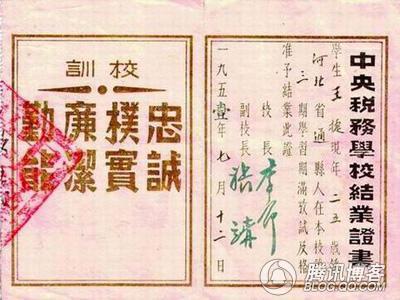 中央稅務學校結業證書
學生王捷現年二五歲係
河北省通縣人在本校第
三期學習期滿攷試及格
准予結業此證
校長李予
副校長
一九五壹年七月十二日
校訓
忠誠
樸實
廉潔
勤能
腾讯博客
BLOG.QQ.COM